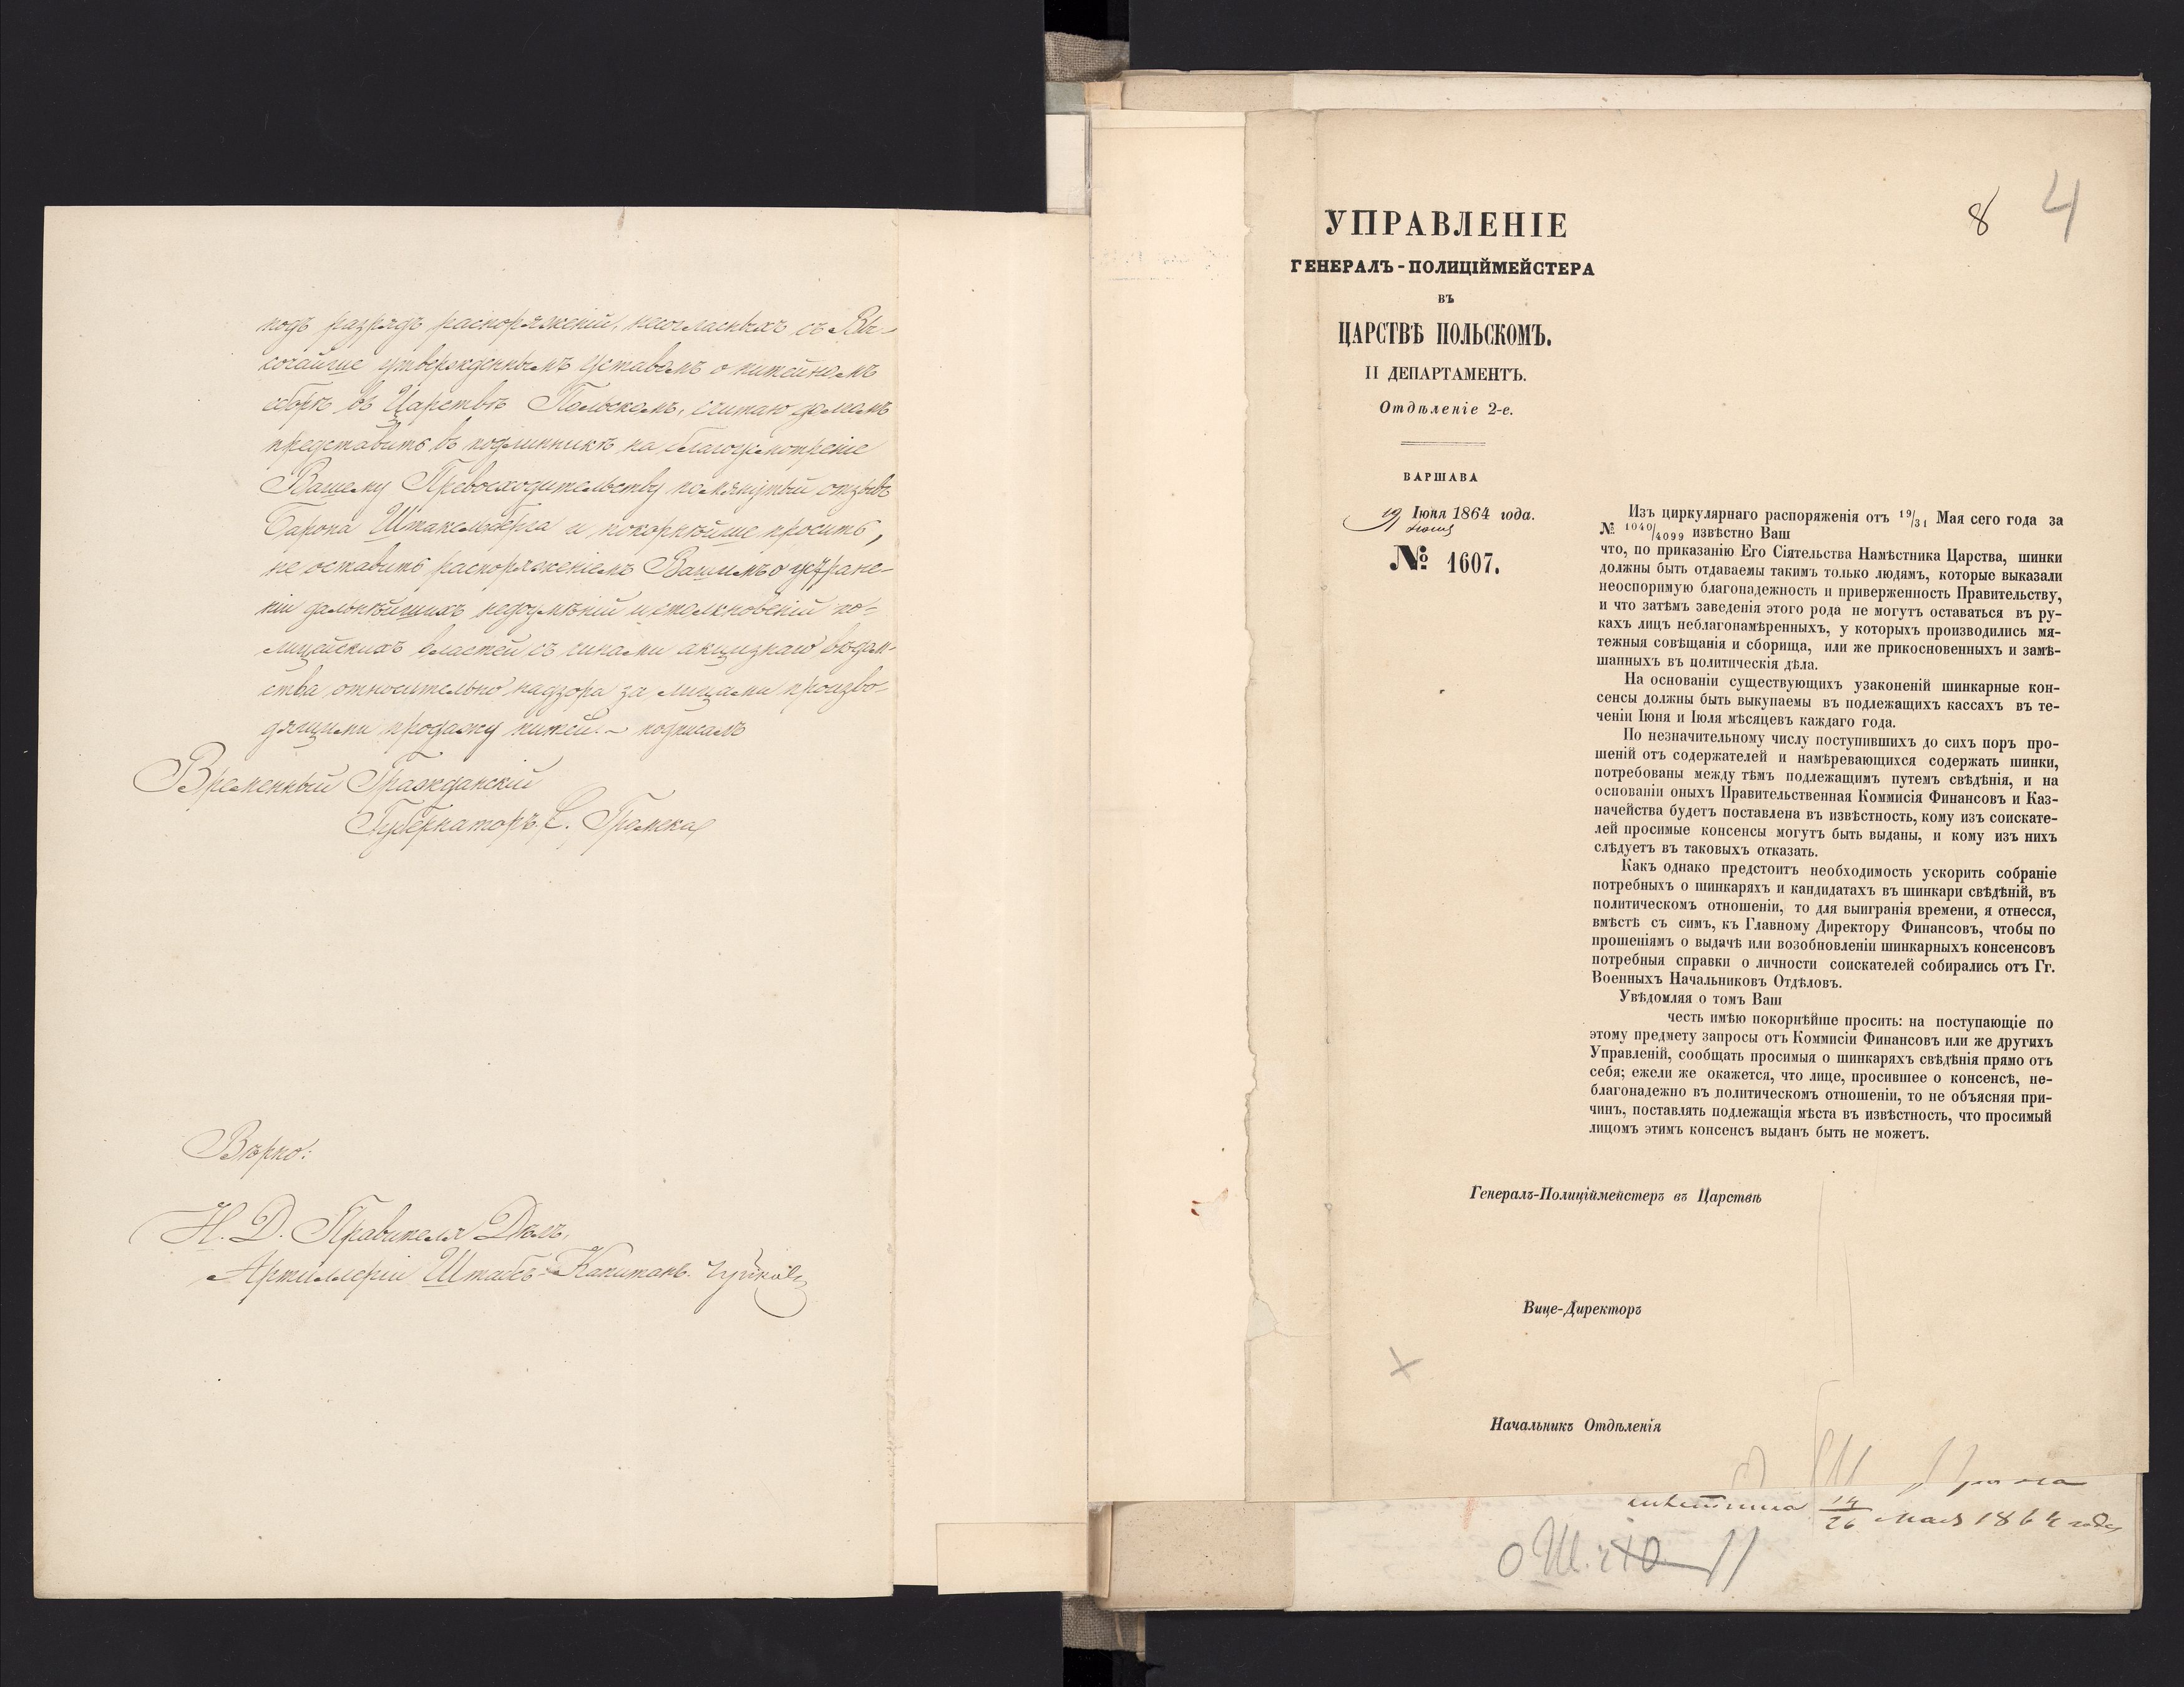 подъ разрядъ распоряженій, несогласныхъ съ Вы-
сочайше утвержденнымъ уставомъ о питейномъ
сборѣ въ Царствѣ Польскомъ, считаю долгомъ
представить въ подлинникѣ на благоусмотреніе
Вашему Превосходительству помянутый отзывъ
Барона Штакельберга и покорнѣйше просить,
не оставить распоряженіемъ Вашимъ о устране-
ніи дальнѣйшихъ недоумѣній и столкновеній по-
лицейскихъ властей съ чинами акцизнаго вѣдом-
ства относительно надзора за лицами произво-
дящими продажу питей. – подписалъ
Временный Гражданскій
Губернаторъ, С. Громека
Вѣрно:
И. Д. Правителя Дѣлъ,
Артиллеріи Штабсъ-Капитанъ
8 4
УПРАВЛЕНІЕ
ГЕНЕРАЛЪ-ПОЛИЦІЙМЕЙСТЕРА
ВЪ
ЦАРСТВѢ ПОЛЬСКОМЪ.
II ДЕПАРТАМЕНТЪ.
Отдѣленіе 2-е.
ВАРШАВА
19 Іюня 1864 года.
№ 1607.
Изъ циркулярнаго распоряженія отъ 19/31 Мая сего года за
№ 1040/4099 извѣстно Ваш
что, по приказанію Его Сіятельства Намѣстника Царства, шинки
должны быть отдаваемы такимъ только людямъ, которые выказали
неоспоримую благонадежность и приверженность Правительству,
и что затѣмъ заведенія этого рода не могутъ оставаться въ ру-
кахъ лицъ неблагонамѣренныхъ, у которыхъ производились мя-
тежныя совѣщанія и сборища, или же прикосновенныхъ и замѣ-
шанныхъ въ политическія дѣла.
На основаніи существующихъ узаконеній шинкарные кон-
сенсы должны быть выкупаемы въ подлежащихъ кассахъ въ те-
ченіи Іюня и Іюля мѣсяцевъ каждаго года.
По незначительному числу поступившихъ до сихъ поръ про-
шеній отъ содержателей и намѣревающихся содержать шинки,
потребованы между тѣмъ подлежащимъ путемъ свѣдѣнія, и на
основаніи оныхъ Правительственная Коммисія Финансовъ и Каз-
начейства будетъ поставлена въ извѣстность, кому изъ соискате-
лей просимые консенсы могутъ быть выданы, и кому изъ нихъ
слѣдуетъ въ таковыхъ отказать.
Какъ однако предстоитъ необходимость ускорить собраніе
потребныхъ о шинкаряхъ и кандидатахъ въ шинкари свѣдѣній, въ
политическомъ отношеніи, то для выигранія времени, я отнесся,
вмѣстѣ съ симъ, къ Главному Директору Финансовъ, чтобы по
прошеніямъ о выдачѣ или возобновленіи шинкарныхъ консенсовъ
потребныя справки о личности соискателей собирались отъ Гг.
Военныхъ Начальниковъ Отдѣловъ.
Увѣдомляя о томъ Ваш
честь имѣю покорнѣйше просить: на поступающіе по
этому предмету запросы отъ Коммисіи Финансовъ или же другихъ
Управленій, сообщать просимыя о шинкаряхъ свѣдѣнія прямо отъ
себя; ежели же окажется, что лице, просившее о консенсѣ, не-
благонадежно въ политическомъ отношеніи, то не объясняя при-
чинъ, поставлять подлежащія мѣста въ извѣстность, что просимый
лицомъ этимъ консенсъ выданъ быть не можетъ.
Генералъ-Полиціймейстеръ въ Царствѣ
Вице-Директоръ
Начальникъ Отдѣленія
14/26 Мая 1864 года